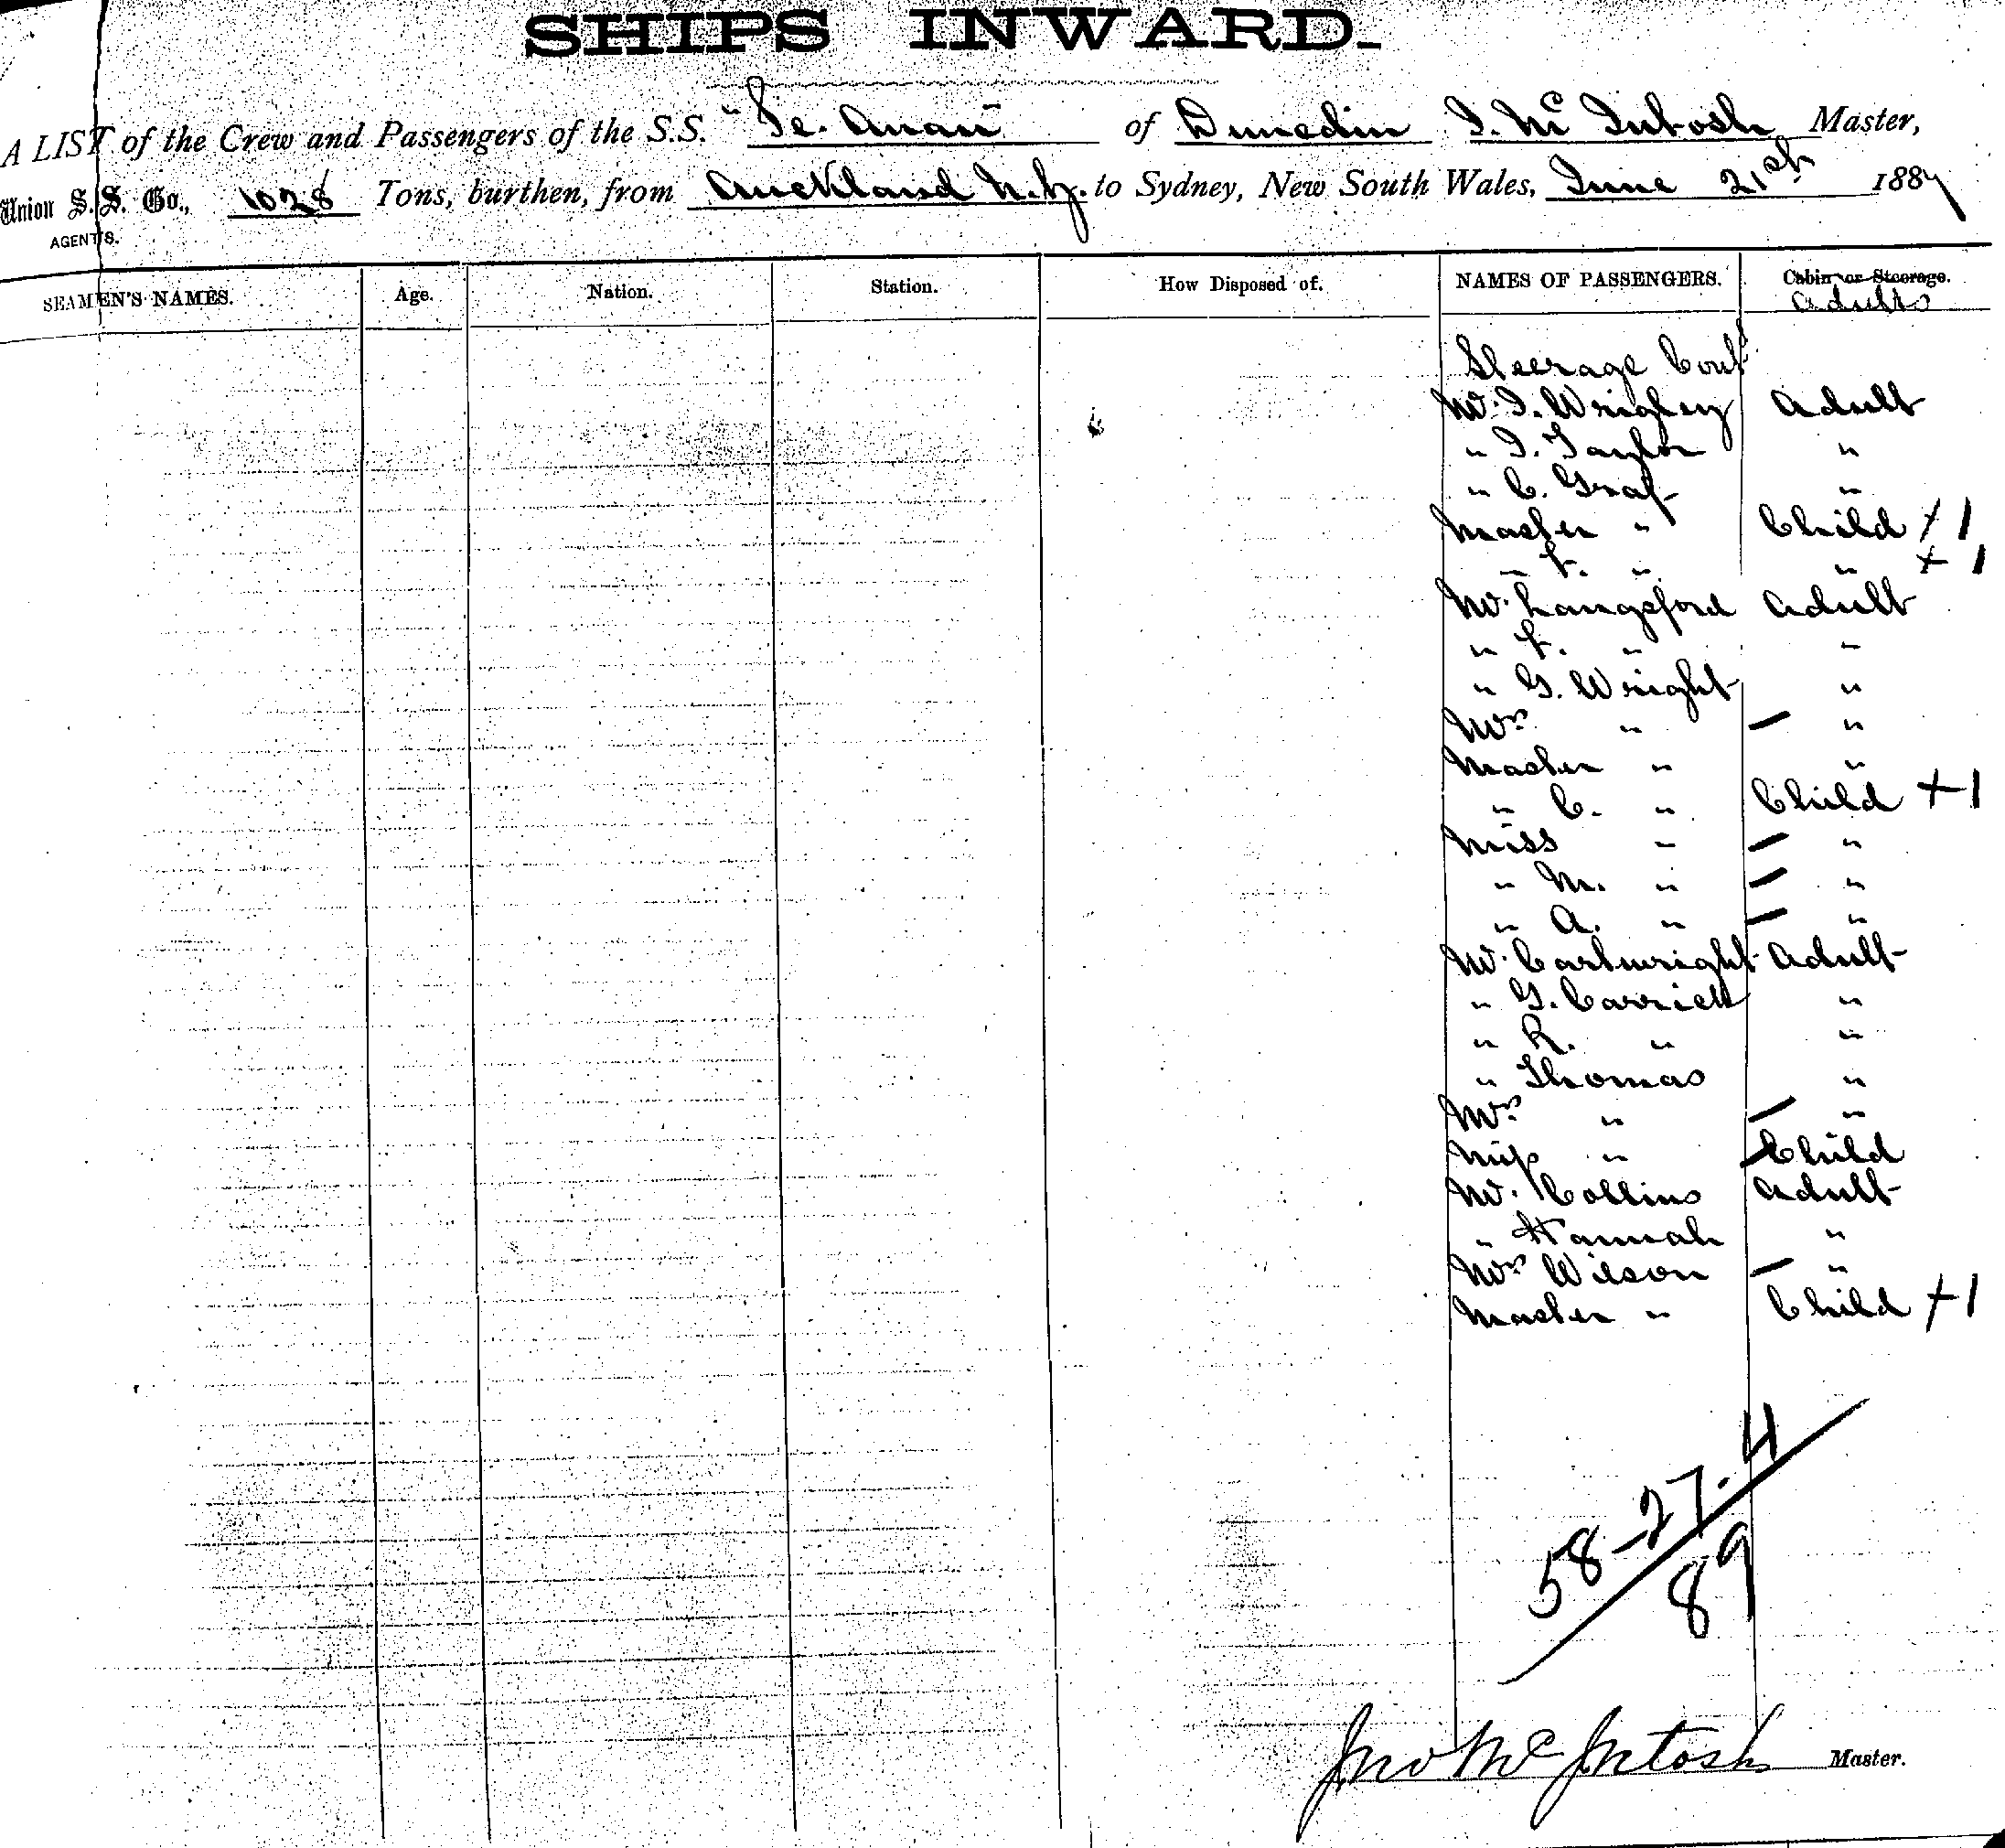 SHIPS INWARD.
A LIST of the Crew and Passengers of the S.S. "Te. Anau" of Dunedin J. McIntosh Master,
Union S.S. Co., 1028 Tons, burthen, from Auckland N.Z. to Sydney, New South Wales, June 21st 1887
AGENTS.
SEAMEN'S NAMES. Age. Nation. Station. How Disposed of. NAMES OF PASSENGERS. Cabin or Steerage.
Adults
Steerage Contd
Mr. J. Wrigley Adult
" J. Taylor "
" C. Graf "
Master " Child +1
" F. " " +1
Mr. Langsford Adult
" F. " "
" G. Wright "
Mrs " — "
Master " "
" C. " Child +1
Miss " — "
" M. " — "
" A. " — "
Mr. Cartwright Adult
" G. "
" R. " "
" Thomas "
Mrs " — "
Miss " Child
Mr. Collins Adult
" Hannah "
Mrs Wilson — "
Master " Child +1
58-27.4
89
Jno McIntosh Master.